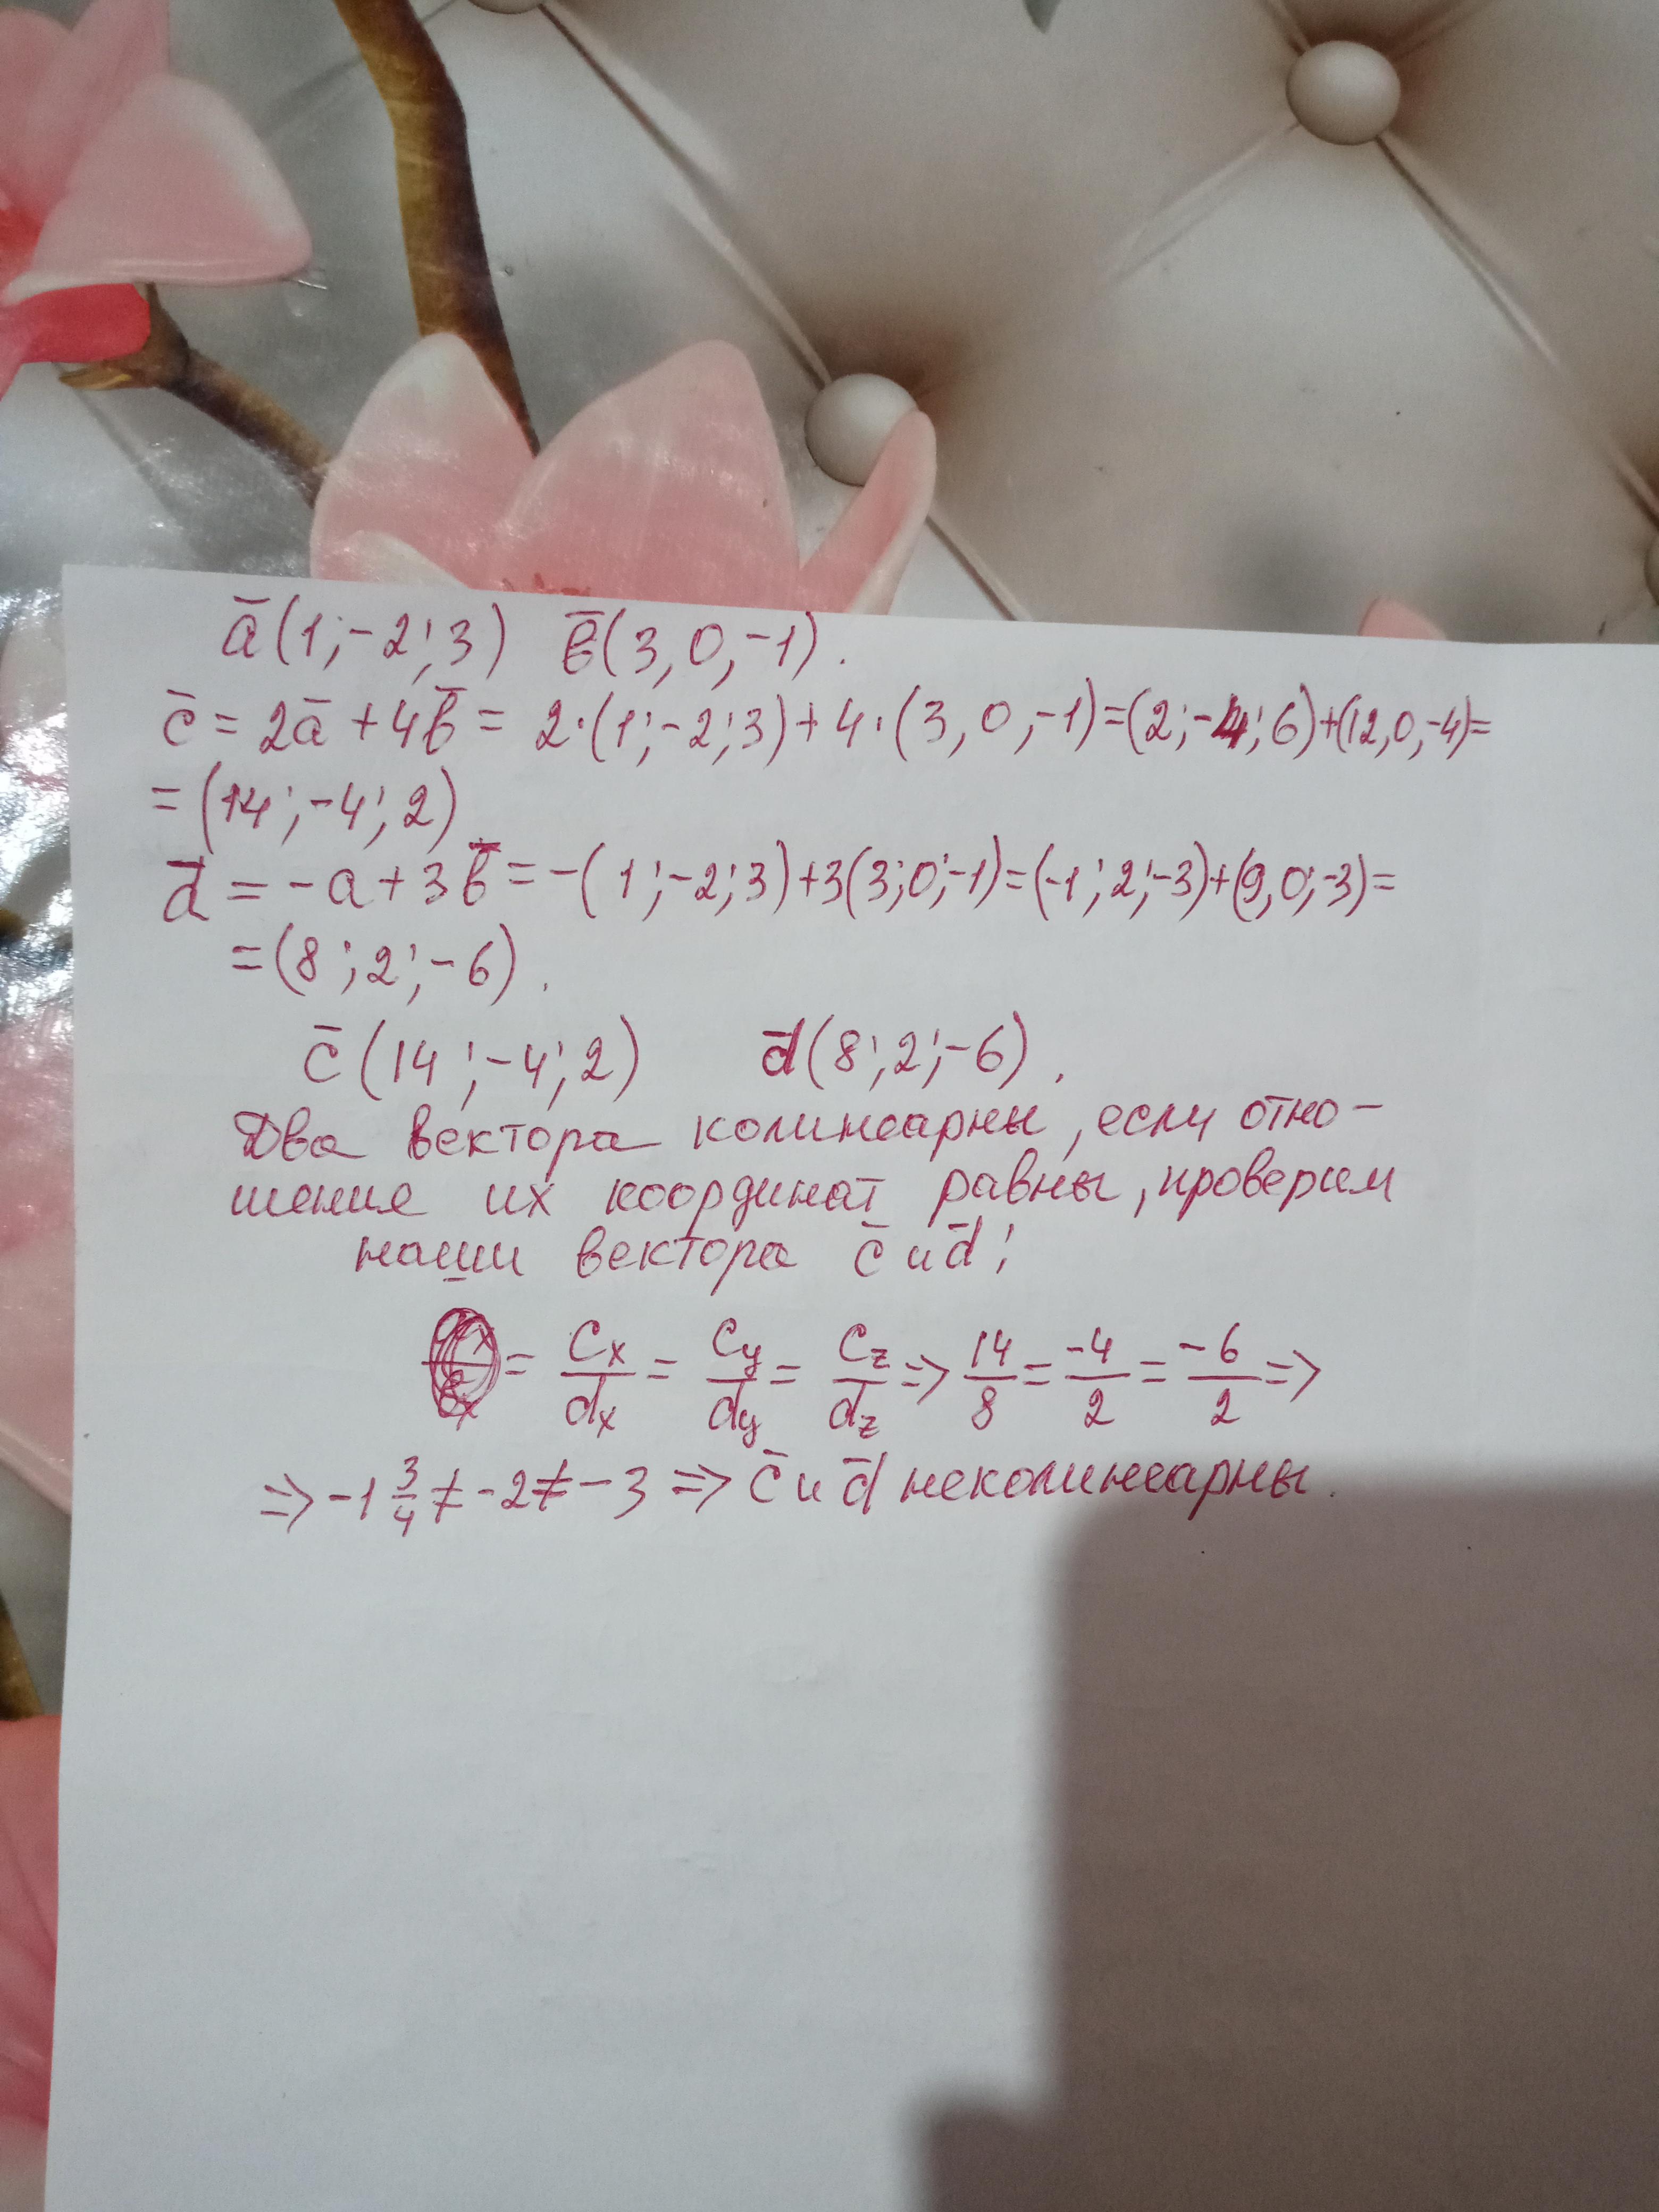 ā(1;-2;3) b̄(3,0,-1).
c̄ = 2ā + 4b̄ = 2·(1;-2;3)+4·(3,0,-1)=(2;-4;6)+(12,0,-4)=
=(14;-4;2)
d̄ = -a+3b̄=-(1;-2;3)+3(3;0;-1)=(-1;2;-3)+(9,0;-3)=
=(8;2;-6).
c̄(14;-4;2) d̄(8;2;-6).
Два вектора колинеарны, если отно-
шения их координат равны, проверим
наши вектора c̄ и d̄:
= Cx/dx = Cy/dy = Cz/dz => 14/8 = -4/2 = -6/2 =>
=> -1 3/4 ≠ -2 ≠ -3 => c̄ и d̄ неколинеарны.